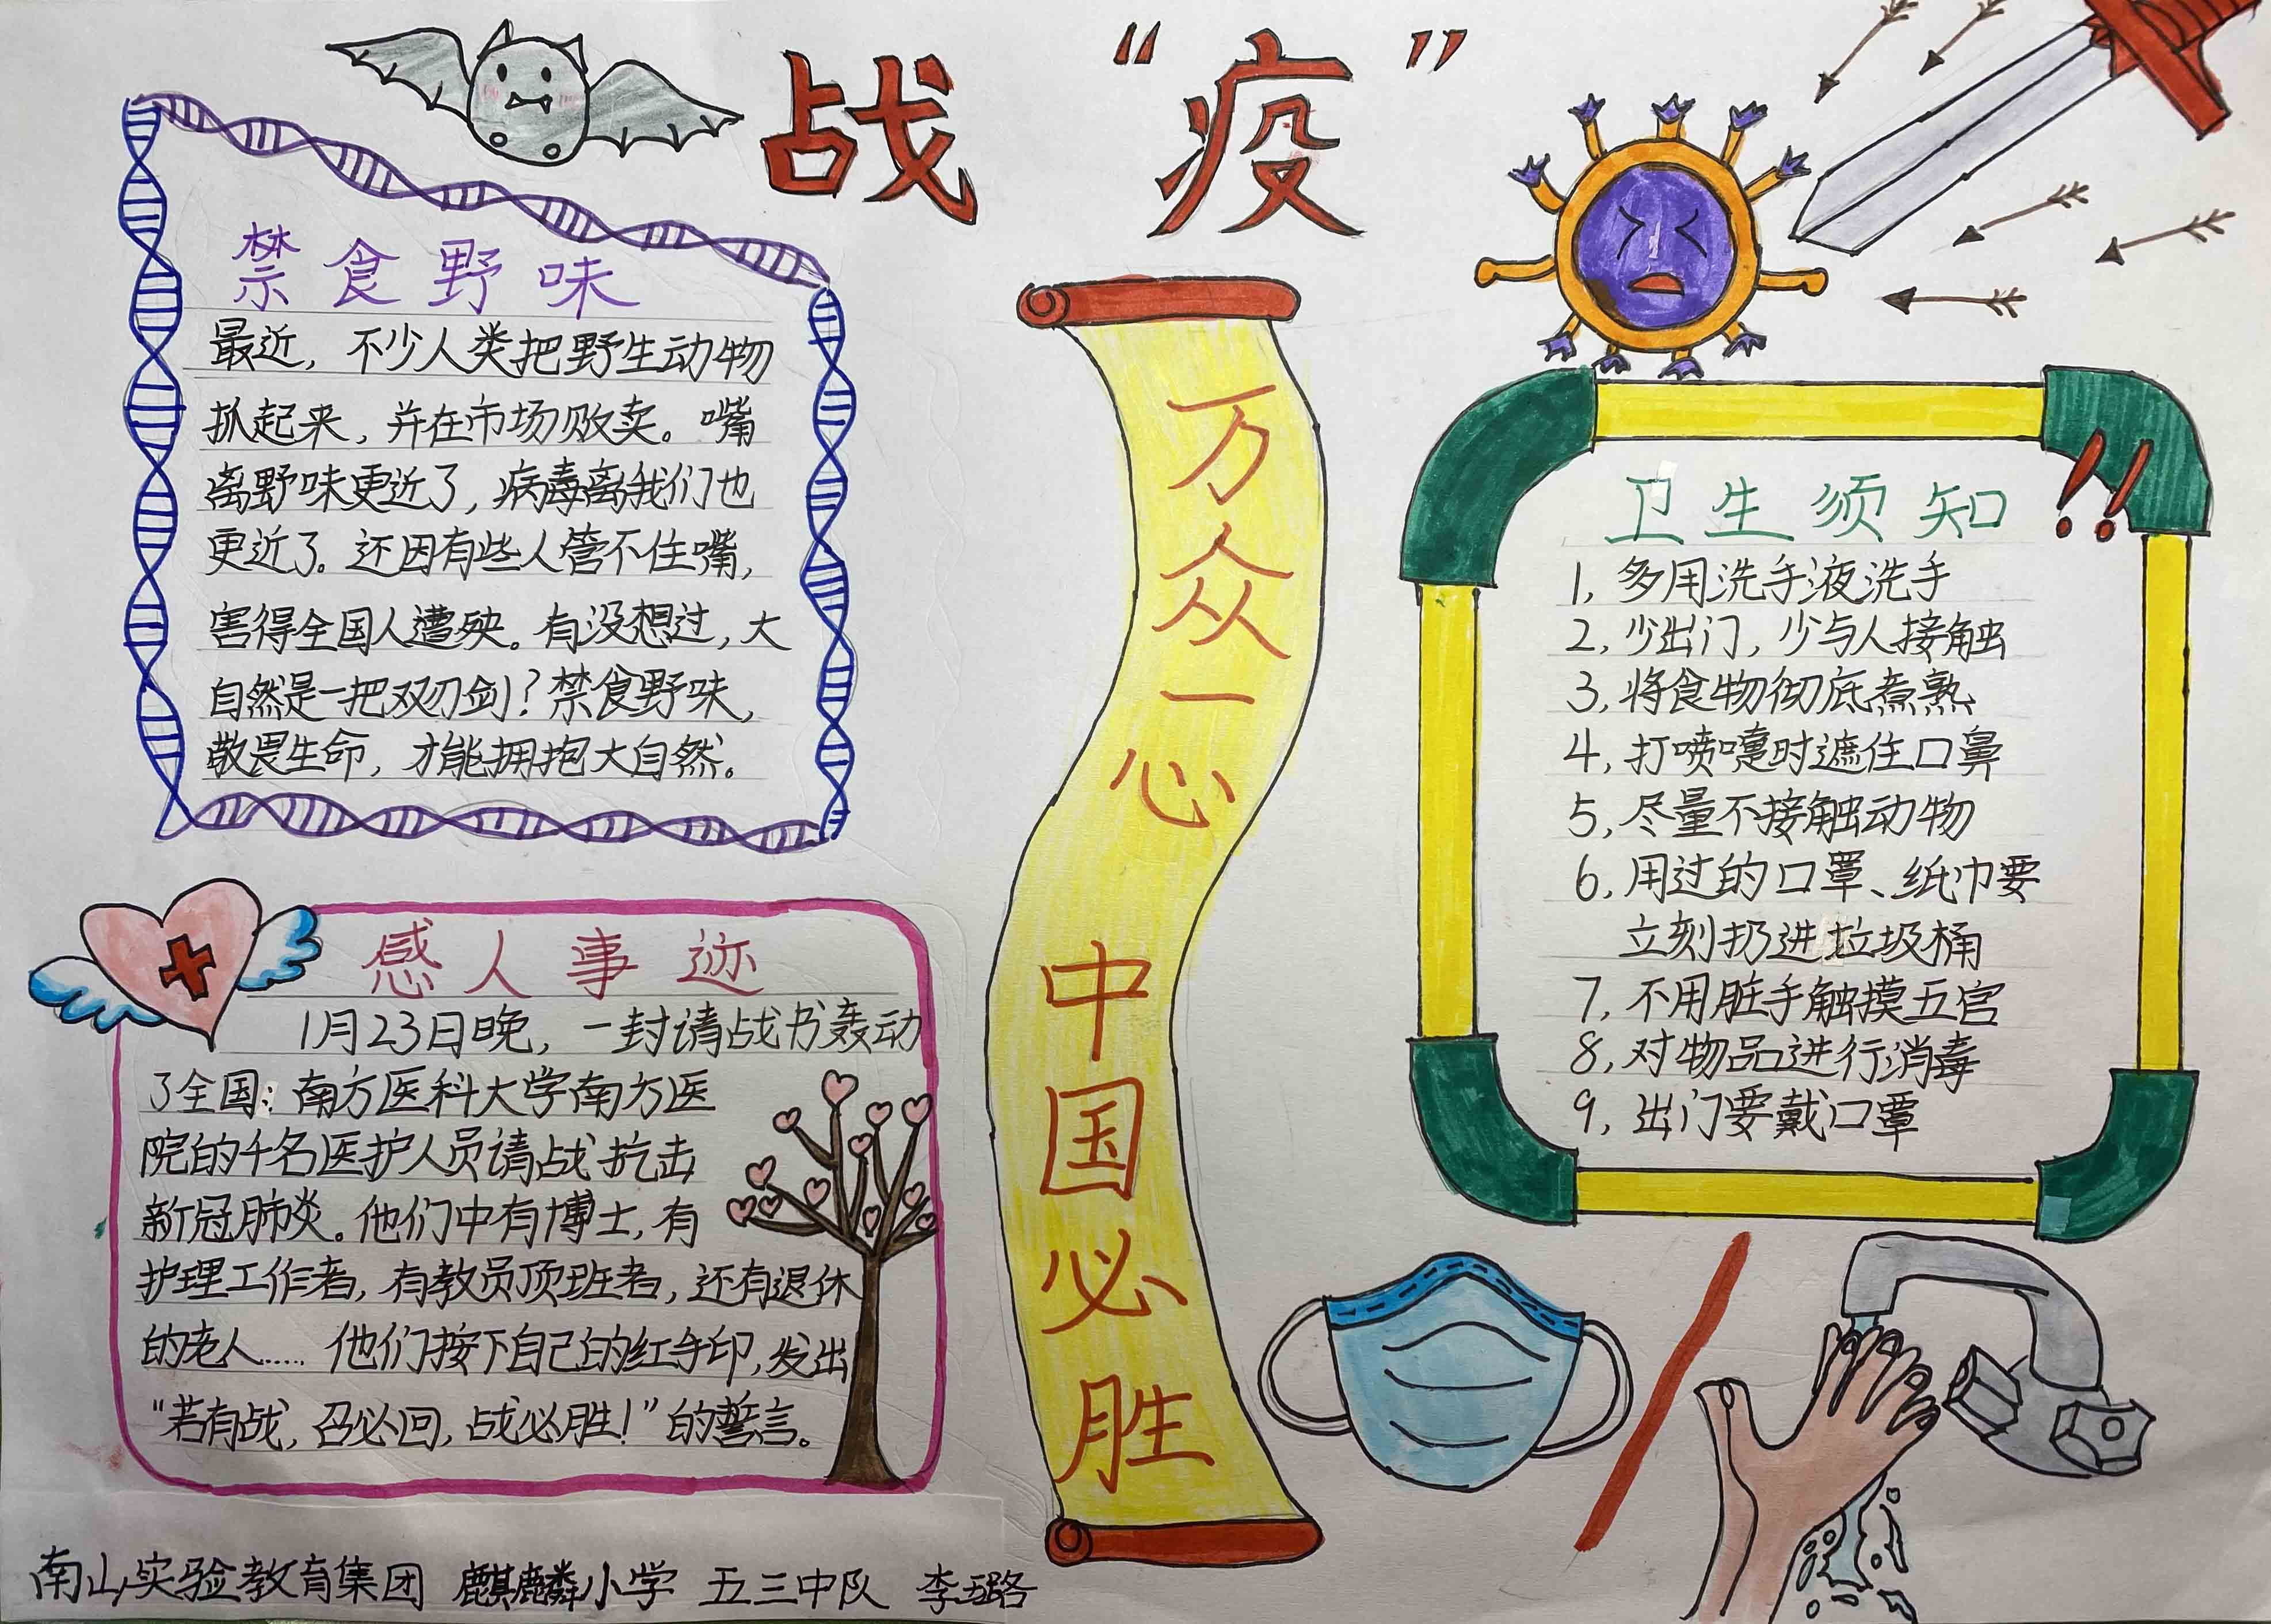 战“疫”
禁食野味
最近，不少人类把野生动物
抓起来，并在市场贩卖。嘴
离野味更近了，病毒离我们也
更近了。还因有些人管不住嘴，
害得全国人遭殃。有没想过，大
自然是一把双刃剑？禁食野味，
敬畏生命，才能拥抱大自然。
感人事迹
1月23日晚，一封请战书轰动
了全国：南方医科大学南方医
院的千名医护人员请战抗击
新冠肺炎。他们中有博士，有
护理工作者，有教员顶班者，还有退休
的老人…… 他们按下自己的红手印，发出
“若有战，召必回，战必胜！”的誓言。
万众一心 中国必胜
卫生须知!!
1，多用洗手液洗手
2，少出门，少与人接触
3，将食物彻底煮熟
4，打喷嚏时遮住口鼻
5，尽量不接触动物
6，用过的口罩、纸巾要
立刻扔进垃圾桶
7，不用脏手触摸五官
8，对物品进行消毒
9，出门要戴口罩
南山实验教育集团 麒麟小学 五三中队 李璐